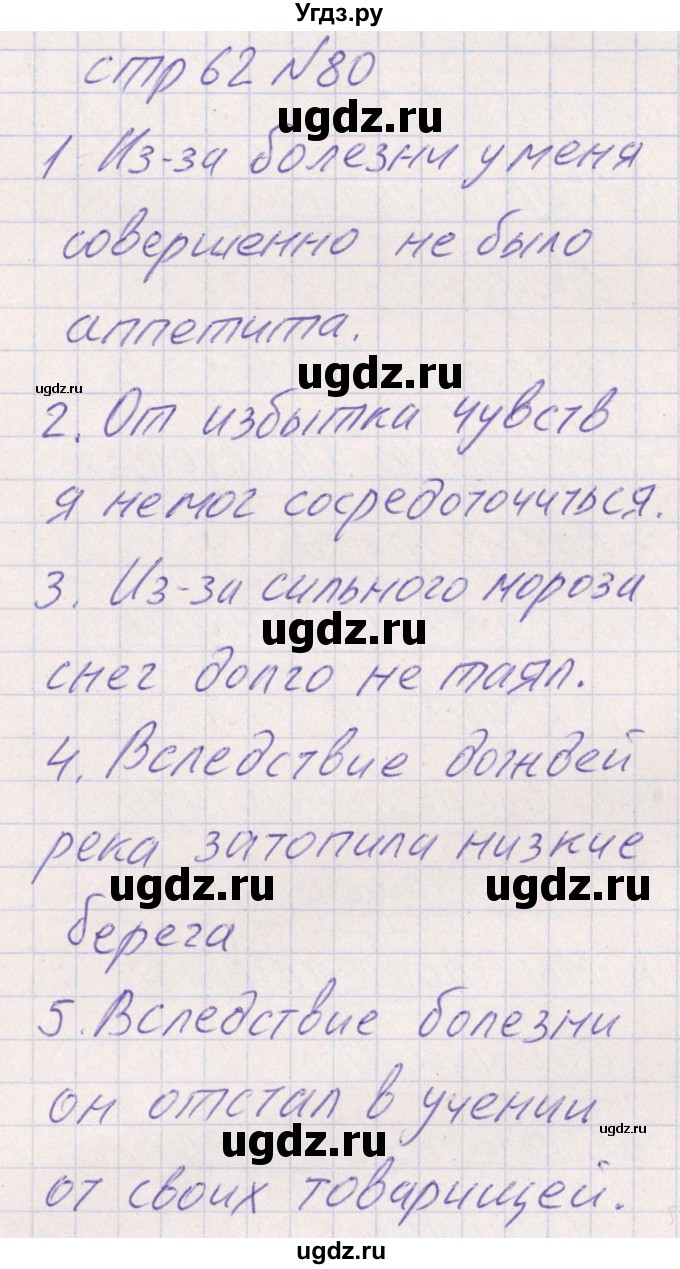 Угдз.ру
стр 62 №80
ugdz.ru
1 Из-за болезни у меня
совершенно не было
аппетита.
ugdz.ru
ugdz.ru
2. От избытка чувств
я не мог сосредоточиться.
3. Из-за сильного мороза
ugdz.ru
снег долго не таял.
4. Вследствие дождей
река затопила низкие
ugdz.ru
ugdz.ru
берега
5. Вследствие болезни
он отстал в учении
ugdz.ru
ugdz.ru
от своих товарищей.
ugdz.ru